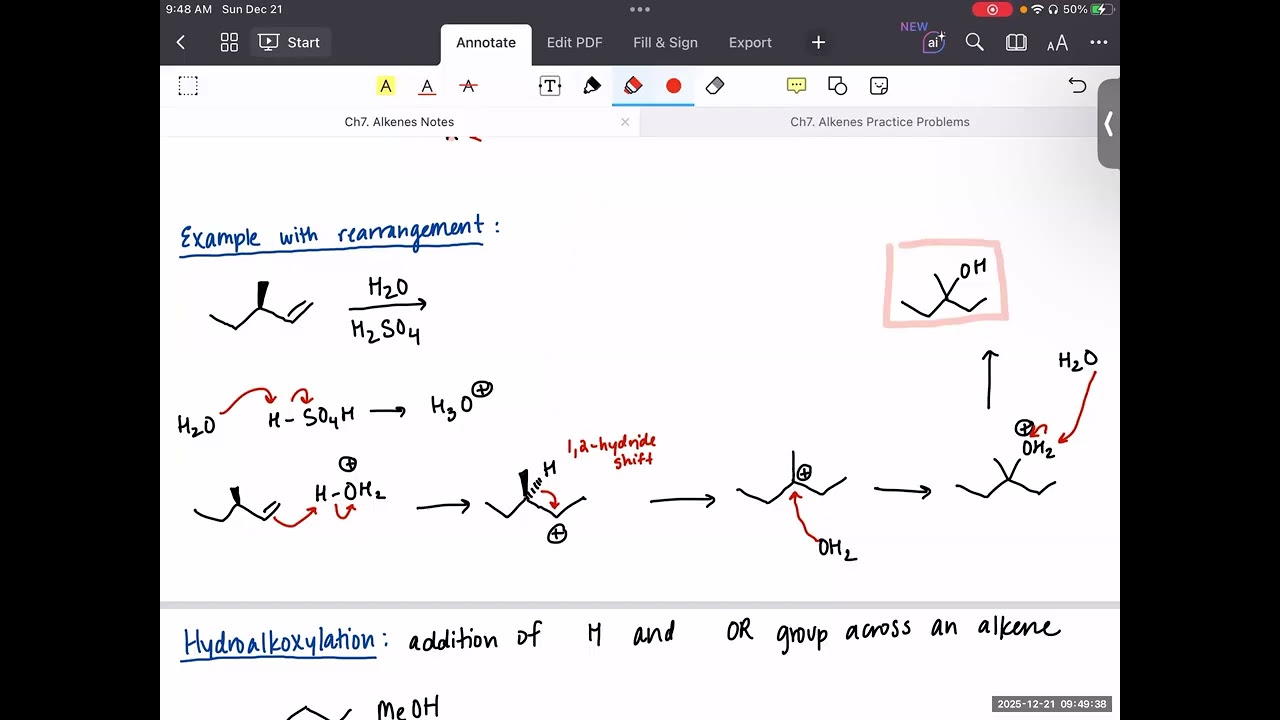 9:48 AM Sun Dec 21
50%
Start
Annotate
Edit PDF
Fill & Sign
Export
NEW
ai
AA
A A A T
Ch7. Alkenes Notes
Ch7. Alkenes Practice Problems
Example with rearrangement:
OH
H2O
H2SO4
H2O
H2O H-SO4H → H3O⊕
⊕
OH2
1,2-hydride
shift
H
⊕
H-OH2
⊕
⊕
OH2
Hydroalkoxylation: addition of H and OR group across an alkene
MeOH
2025-12-21 09:49:38